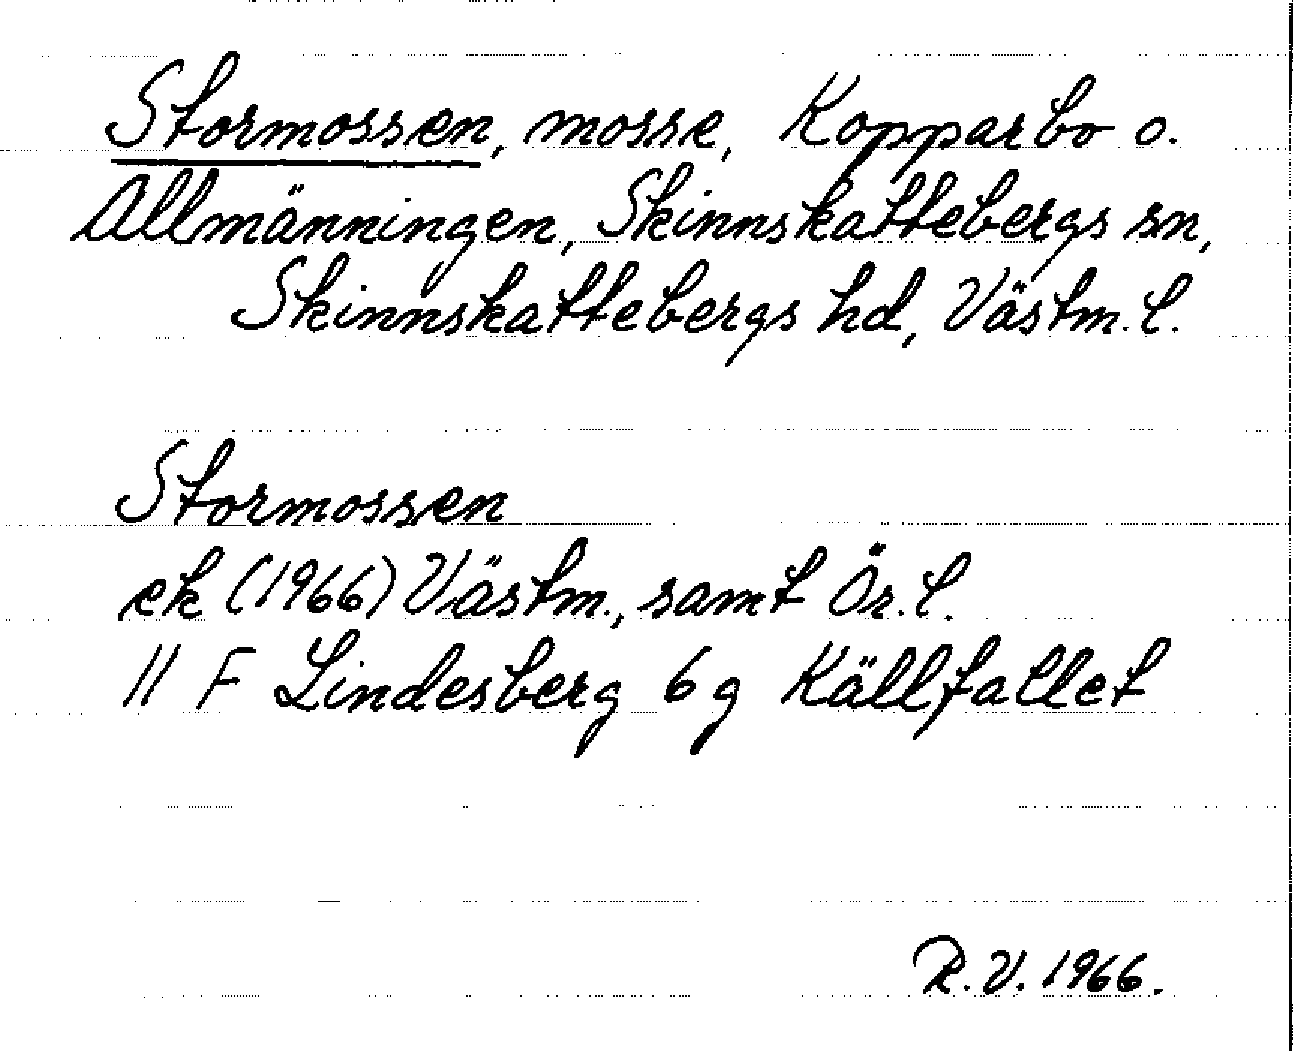 Stormossen, mosse, Kopparbo o.
Allmänningen, Skinnskattebergs sn,
Skinnskattebergs hd, Västm. l.
Stormossen
ek (1966) Västm., samt Ör. l.
11 F Lindesberg 6 g Källfallet
R. V. 1966.